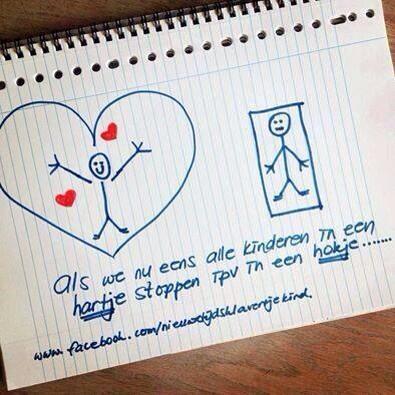 als we nu eens alle kinderen in een
hartje stoppen ipv in een hokje.......
www.facebook.com/nieuwetijdsklavertjekind.